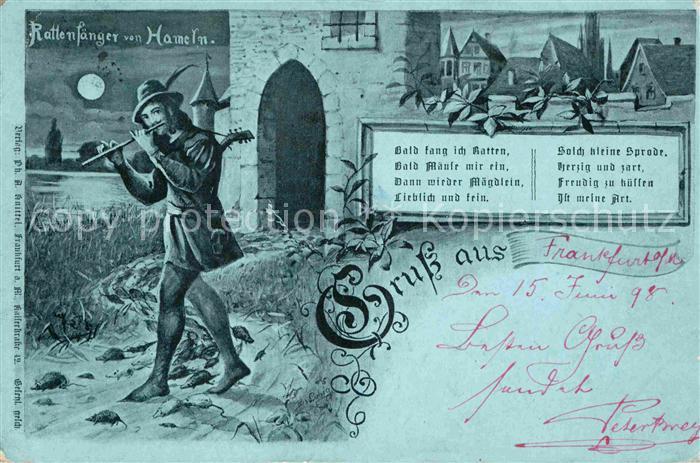 Rattenfänger von Hameln.
Bald fang ich Ratten,
Bald Mäuse mir ein,
Dann wieder Mägdlein,
Lieblich und fein.
Solch kleine Sprode,
Herzig und zart,
Freudig zu küssen
Ist meine Art.
Gruß aus Frankfurt a/M
Den 15. Juni 98.
Besten Gruß
sendet
Peter
Verlag: Ph. A. Knittel, Frankfurt a. M. Kaiserstraße 42. Gesetzl. gesch.
copy protection Kopierschutz